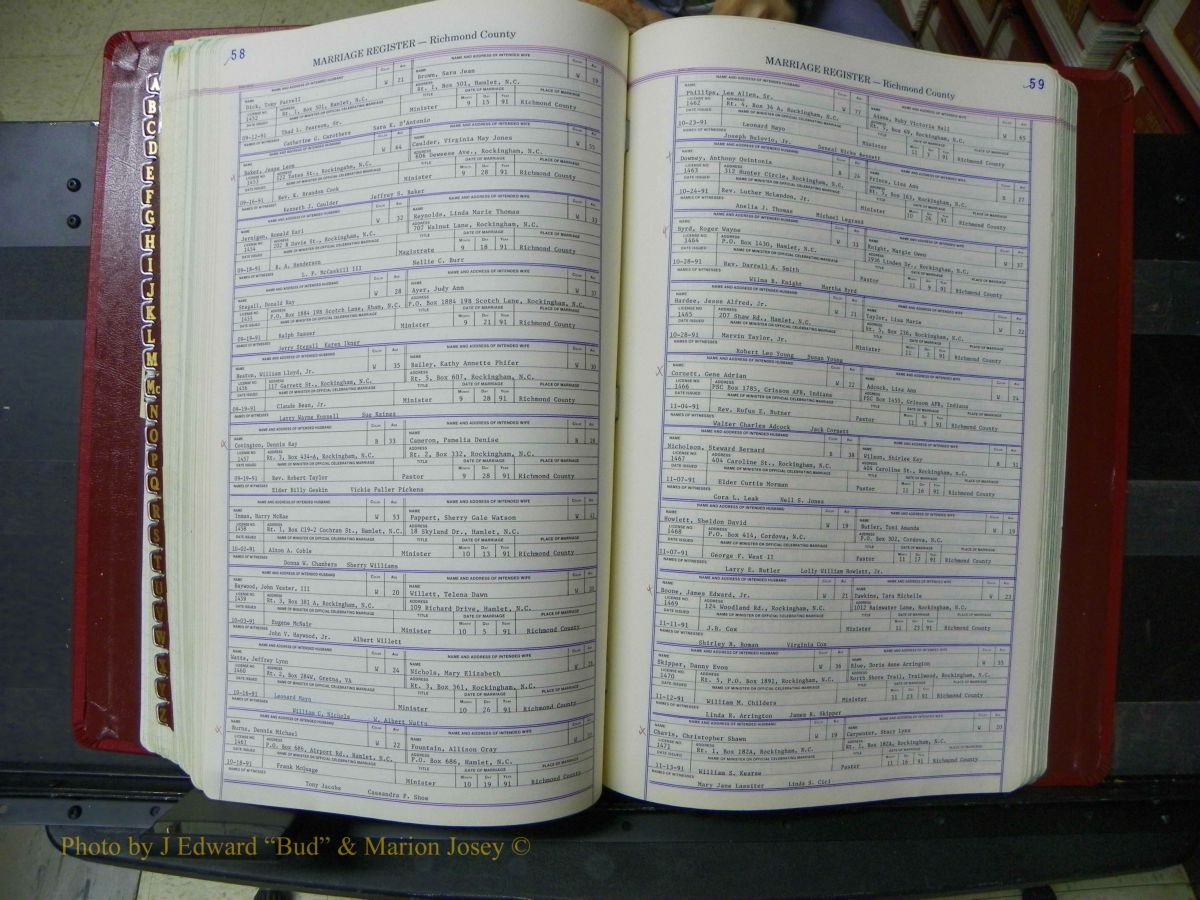 58
MARRIAGE REGISTER — Richmond County
NAME AND ADDRESS OF INTENDED HUSBAND COLOR AGE NAME AND ADDRESS OF INTENDED WIFE COLOR AGE
Dick, Toby Farrell W 21 Brown, Sara Jean W 19
1452 Rt. 1, Box 501, Hamlet, N.C. Rt. 1, Box 501, Hamlet, N.C.
09-12-91 Thad L. Pearson, Sr. Minister 9 15 91 Richmond County
Catherine G. Carothers Sara E. D'Antonio
Baker, Jesse Leon W 64 Caulder, Virginia May Jones W 55
1453 122 Yates St., Rockingham, N.C. 606 Dewease Ave., Rockingham, N.C.
09-16-91 Rev. K. Braxdon Cook Minister 9 28 91 Richmond County
Kenneth J. Caulder Jeffrey S. Baker
Jernigan, Ronald Earl W 32 Reynolds, Linda Marie Thomas W 33
1454 202 B Davis St., Rockingham, N.C. 707 Walnut Lane, Rockingham, N.C.
09-18-91 R. A. Henderson Magistrate 9 18 91 Richmond County
L. F. McCaskill III Nellie C. Burr
Stegall, Donald Ray W 28 Ayer, Judy Ann W 37
1455 P.O. Box 1884 198 Scotch Lane, Rham, N.C. P.O. Box 1884 198 Scotch Lane, Rockingham, N.C.
09-19-91 Ralph Sasser Minister 9 21 91 Richmond County
Jerry Stegall Karen Ikner
Heaton, William Lloyd, Jr. W 35 Bailey, Kathy Annette Phifer W 30
1456 117 Garrett St., Rockingham, N.C. Rt. 5, Box 607, Rockingham, N.C.
09-19-91 Claude Bean, Jr. Minister 9 28 91 Richmond County
Larry Wayne Russell Sue Haines
Covington, Dennis Ray B 33 Cameron, Pamelia Denise B 28
1457 Rt. 3, Box 434-A, Rockingham, N.C. Rt. 2, Box 332, Rockingham, N.C.
09-19-91 Rev. Robert Taylor Pastor 9 28 91 Richmond County
Elder Billy Gaskin Vickie Fuller Pickens
Inman, Harry McRae W 53 Pappert, Sherry Gale Watson W 41
1458 Rt. 1, Box C19-2 Cochran St., Hamlet, N.C. 18 Skyland Dr., Hamlet, N.C.
10-02-91 Alton A. Coble Minister 10 13 91 Richmond County
Donna W. Chambers Sherry Williams
Haywood, John Vester, III W 20 Willett, Telena Dawn W 20
1459 Rt. 3, Box 381 A, Rockingham, N.C. 109 Richard Drive, Hamlet, N.C.
10-03-91 Eugene McNair Minister 10 5 91 Richmond County
John V. Haywood, Jr. Albert Willett
Watts, Jeffrey Lynn W 24 Nichols, Mary Elizabeth W
1460 Rt. 2, Box 284W, Gretna, VA Rt. 3, Box 561, Rockingham, N.C.
10-16-91 Leonard Mayo Minister 10 26 91 Richmond County
William C. Nichols W. Albert Watts
Burns, Dennis Michael W 22 Fountain, Allison Gray
1461 P.O. Box 686, Airport Rd., Hamlet, N.C. P.O. Box 686, Hamlet, N.C.
10-18-91 Frank McQuage Minister 10 19 91 Richmond County
Tony Jacobs Cassandra F. Shoe
59
MARRIAGE REGISTER — Richmond County
NAME AND ADDRESS OF INTENDED HUSBAND COLOR AGE NAME AND ADDRESS OF INTENDED WIFE COLOR AGE
Phillips, Lee Allen, Sr. W 77 Adams, Ruby Victoria Hall W 65
1462 Rt. 4, Box 34 A, Rockingham, N.C. Rt. 5, Box 69, Rockingham, N.C.
10-23-91 Leonard Mayo Minister 11 91 Richmond County
Joseph Butovic, Jr. Deneal Hicks Bennett
Downey, Anthony Quintonia B 24 Prince, Lisa Ann B 27
1463 312 Hunter Circle, Rockingham, N.C. Rt. 5, Box 163, Rockingham, N.C.
10-24-91 Rev. Luther McLendon, Jr. Minister 10 26 91 Richmond County
Anelia J. Thomas Michael Legrand
Byrd, Roger Wayne W 33 Knight, Margie Gwen W 37
1464 P.O. Box 1430, Hamlet, N.C. 1936 Linden Dr., Rockingham, N.C.
10-28-91 Rev. Darrell A. Smith Minister 11 3 91 Richmond County
Wilma B. Knight Martha Byrd
Hardee, Jesse Alfred, Jr. W 21 Taylor, Lisa Marie W 22
1465 207 Shaw Rd., Hamlet, N.C. Rt. 3, Box 256, Rockingham, N.C.
10-28-91 Marvin Taylor, Jr. Minister 11 91 Richmond County
Robert Leo Young Susan Young
Corsett, Gene Adrian W 22 Adcock, Lisa Ann W 24
1466 PSC Box 1785, Grissom AFB, Indiana PSC Box 1455, Grissom AFB, Indiana
11-04-91 Rev. Rufus E. Butner Pastor 11 9 91 Richmond County
Walter Charles Adcock Jack Corsett
Nicholson, Steward Bernard B 38 Wilson, Shirlee Kay B 31
1467 404 Caroline St., Rockingham, N.C. 404 Caroline St., Rockingham, N.C.
11-07-91 Elder Curtis Morman Pastor 11 16 91 Richmond County
Cora L. Leak Neil S. Jones
Howlett, Sheldon David W 19 Butler, Toni Amanda W 19
1468 P.O. Box 414, Cordova, N.C. P.O. Box 302, Cordova, N.C.
11-07-91 George F. West II Pastor 11 17 91 Richmond County
Larry E. Butler Lolly William Howlett, Jr.
Boone, James Edward, Jr. W 21 Dawkins, Tara Michelle W 23
1469 124 Woodland Rd., Rockingham, N.C. 1012 Rainwater Lane, Rockingham, N.C.
11-11-91 J.B. Cox Minister 11 23 91 Richmond County
Shirley R. Roman Virginia Cox
Skipper, Danny Evon W 36 Blue, Doris Anne Arrington W 35
1470 Rt. 5, P.O. Box 1891, Rockingham, N.C. North Shore Trail, Trailwood, Rockingham, N.C.
11-12-91 William M. Childers Minister 11 23 91 Richmond County
Linda R. Arrington James R. Skipper
Chavis, Christopher Shawn W 19 Carpenter, Stacy Lynn W 20
1471 Rt. 1, Box 182A, Rockingham, N.C. Rt. 1, Box 182A, Rockingham, N.C.
11-13-91 William S. Kearse Pastor 11 16 91 Richmond County
Mary Jane Lassiter Linda S. Cirl
A
B
C
D
E
F
G
H
I
J
K
L
M
Mc
N
O
P
Q
R
S
T
Photo by J Edward “Bud” & Marion Josey ©